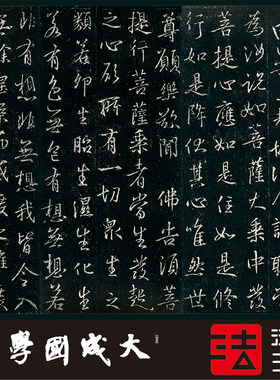 為汝說如菩薩大乘中發
菩提心應如是住如是修
行如是降伏其心唯然世
尊願樂欲聞佛告須菩
提行菩薩乘者當生發趣
之心所有一切眾生之
類若卵生胎生濕生化生
若有色若無色有想無想若
非有想非無想我皆令入
無餘涅槃
大成國學
法